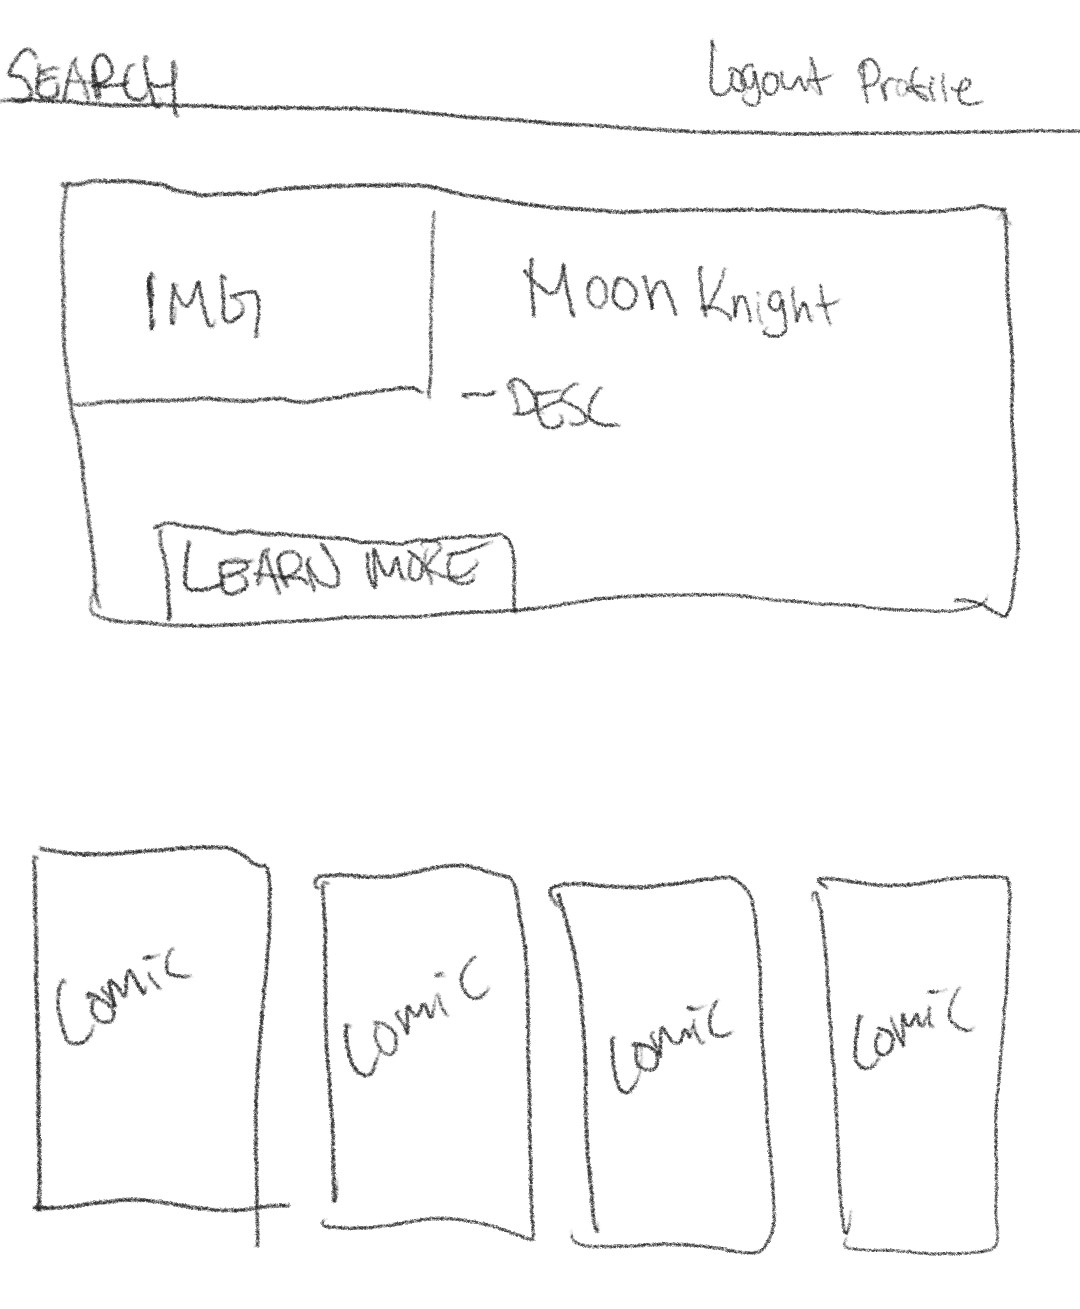 SEARCH
Logout Profile
IMG
Moon Knight
- DESC
LEARN MORE
Comic
Comic
Comic
Comic